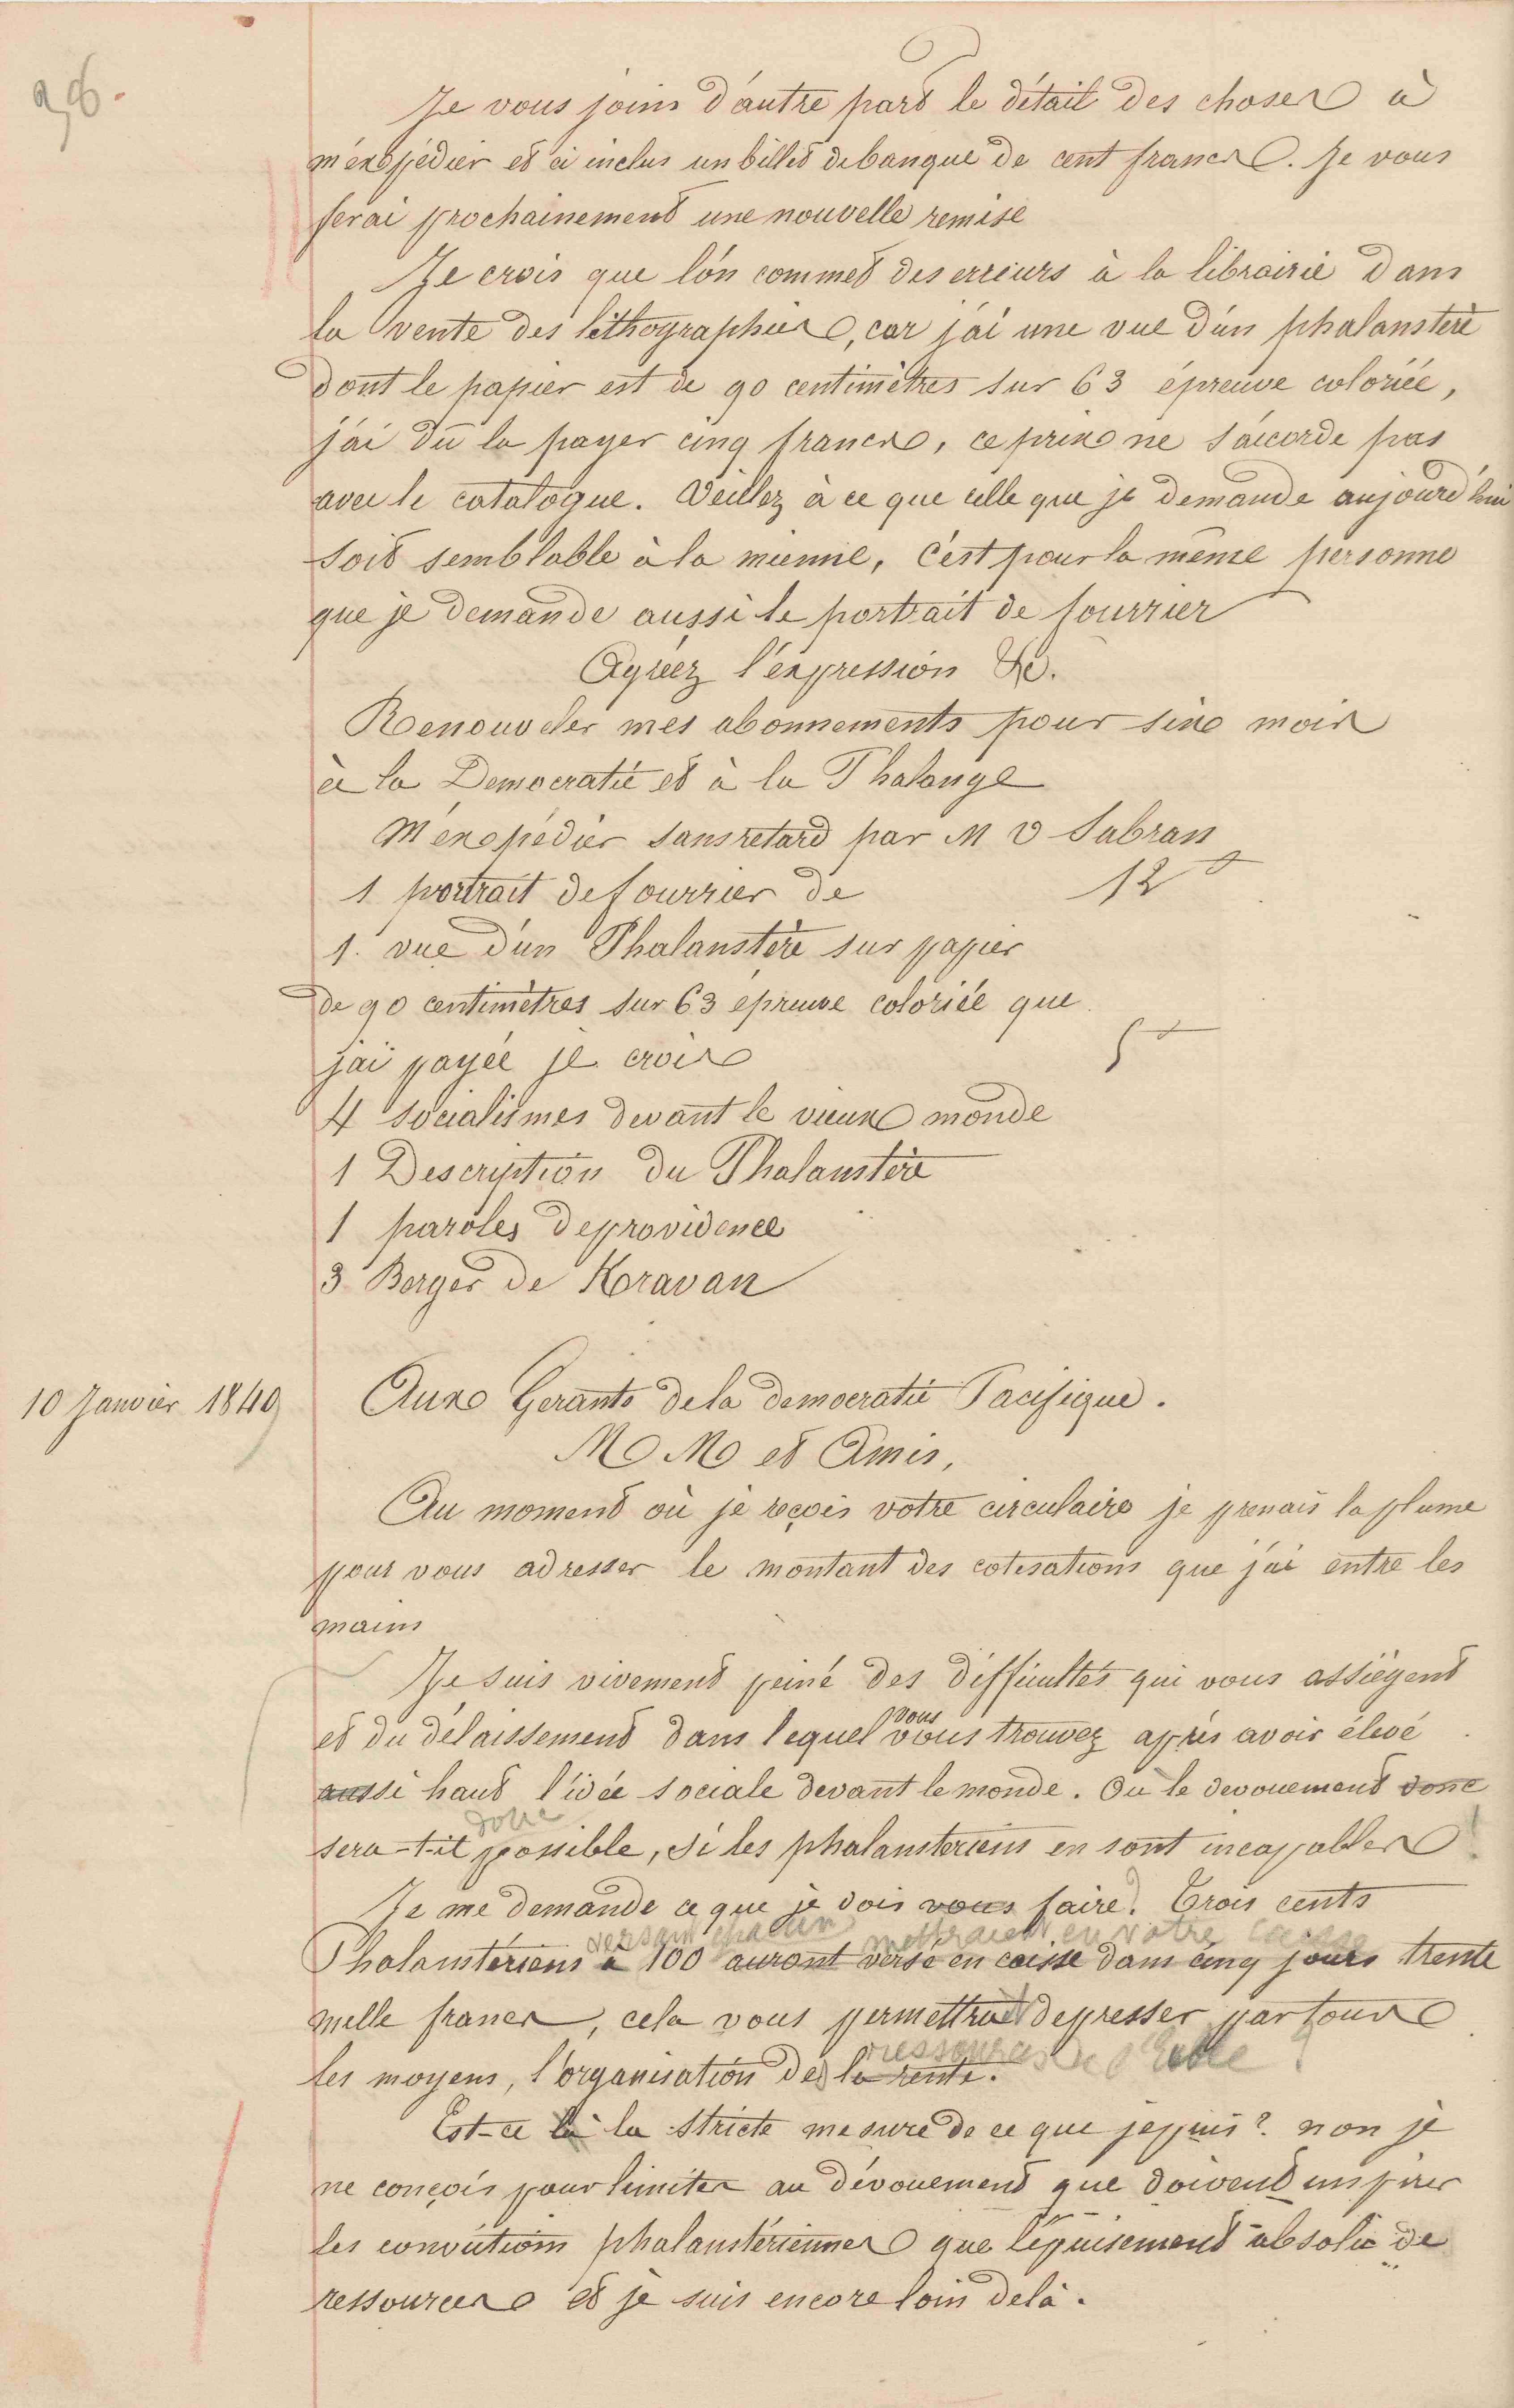 96.
Je vous joins d'autre part le détail des choses à
m'expédier et ci inclus un billet de banque de cent francs. Je vous
ferai prochainement une nouvelle remise
Je crois que l'on commet des erreurs à la librairie dans
la vente des lithographies, car j'ai une vue d'un phalanstère
dont le papier est de 90 centimètres sur 63 épreuve coloriée,
j'ai dû la payer cinq francs, ce prix ne s'accorde pas
avec le catalogue. Veillez à ce que celle que je demande aujourd'hui
soit semblable à la mienne, c'est pour la même personne
que je demande aussi le portrait de fourrier
Agréez l'expression &c.
Renouveler mes abonnements pour six mois
à la Democratie et à la Phalange
M'expédier sans retard par M V Sabran
1 portrait de fourrier de 12 f
1. vue d'un Phalanstère sur papier
de 90 centimètres sur 63 épreuve coloriée que
j'ai payée je crois 5 f
4 socialismes devant le vieux monde
1 Description du Phalanstère
1 paroles de providence
3 Berger de Kravan
10 Janvier 1849
Aux Gerants de la democratie Pacifique.
M M et Amis,
Au moment où je reçois votre circulaire je prenais la plume
pour vous adresser le montant des cotisations que j'ai entre les
mains
Je suis vivement peiné des difficultés qui vous assiègent
vous
et du délaissement dans lequel vous trouvez après avoir élevé
aussi haut l'idée sociale devant le monde. Où le devouement donc
donc
sera-t-il possible, si les phalanstériens en sont incapables!
Je me demande ce que je dois vous faire? Trois cents
versant chacun mettraient en votre caisse
Phalanstériens à 100 auront versé en caisse dans cinq jours trente
mille francs, cela vous permettrait de presser par tous
ressources de l'Ecole ?
les moyens, l'organisation des la rente.
Est-ce là la stricte mesure de ce que je puis? non je
ne conçois pour limites au dévouement que doivent inspirer
les convictions phalanstériennes que l'épuisement absolu de
ressources et je suis encore loin delà.